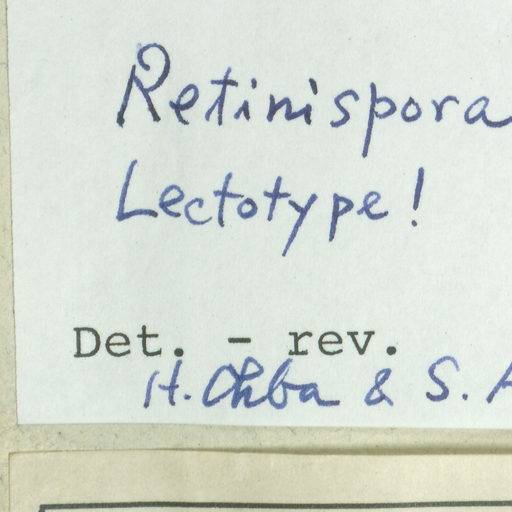 Retinispora
Lectotype!
Det. - rev.
H. Ohba & S.